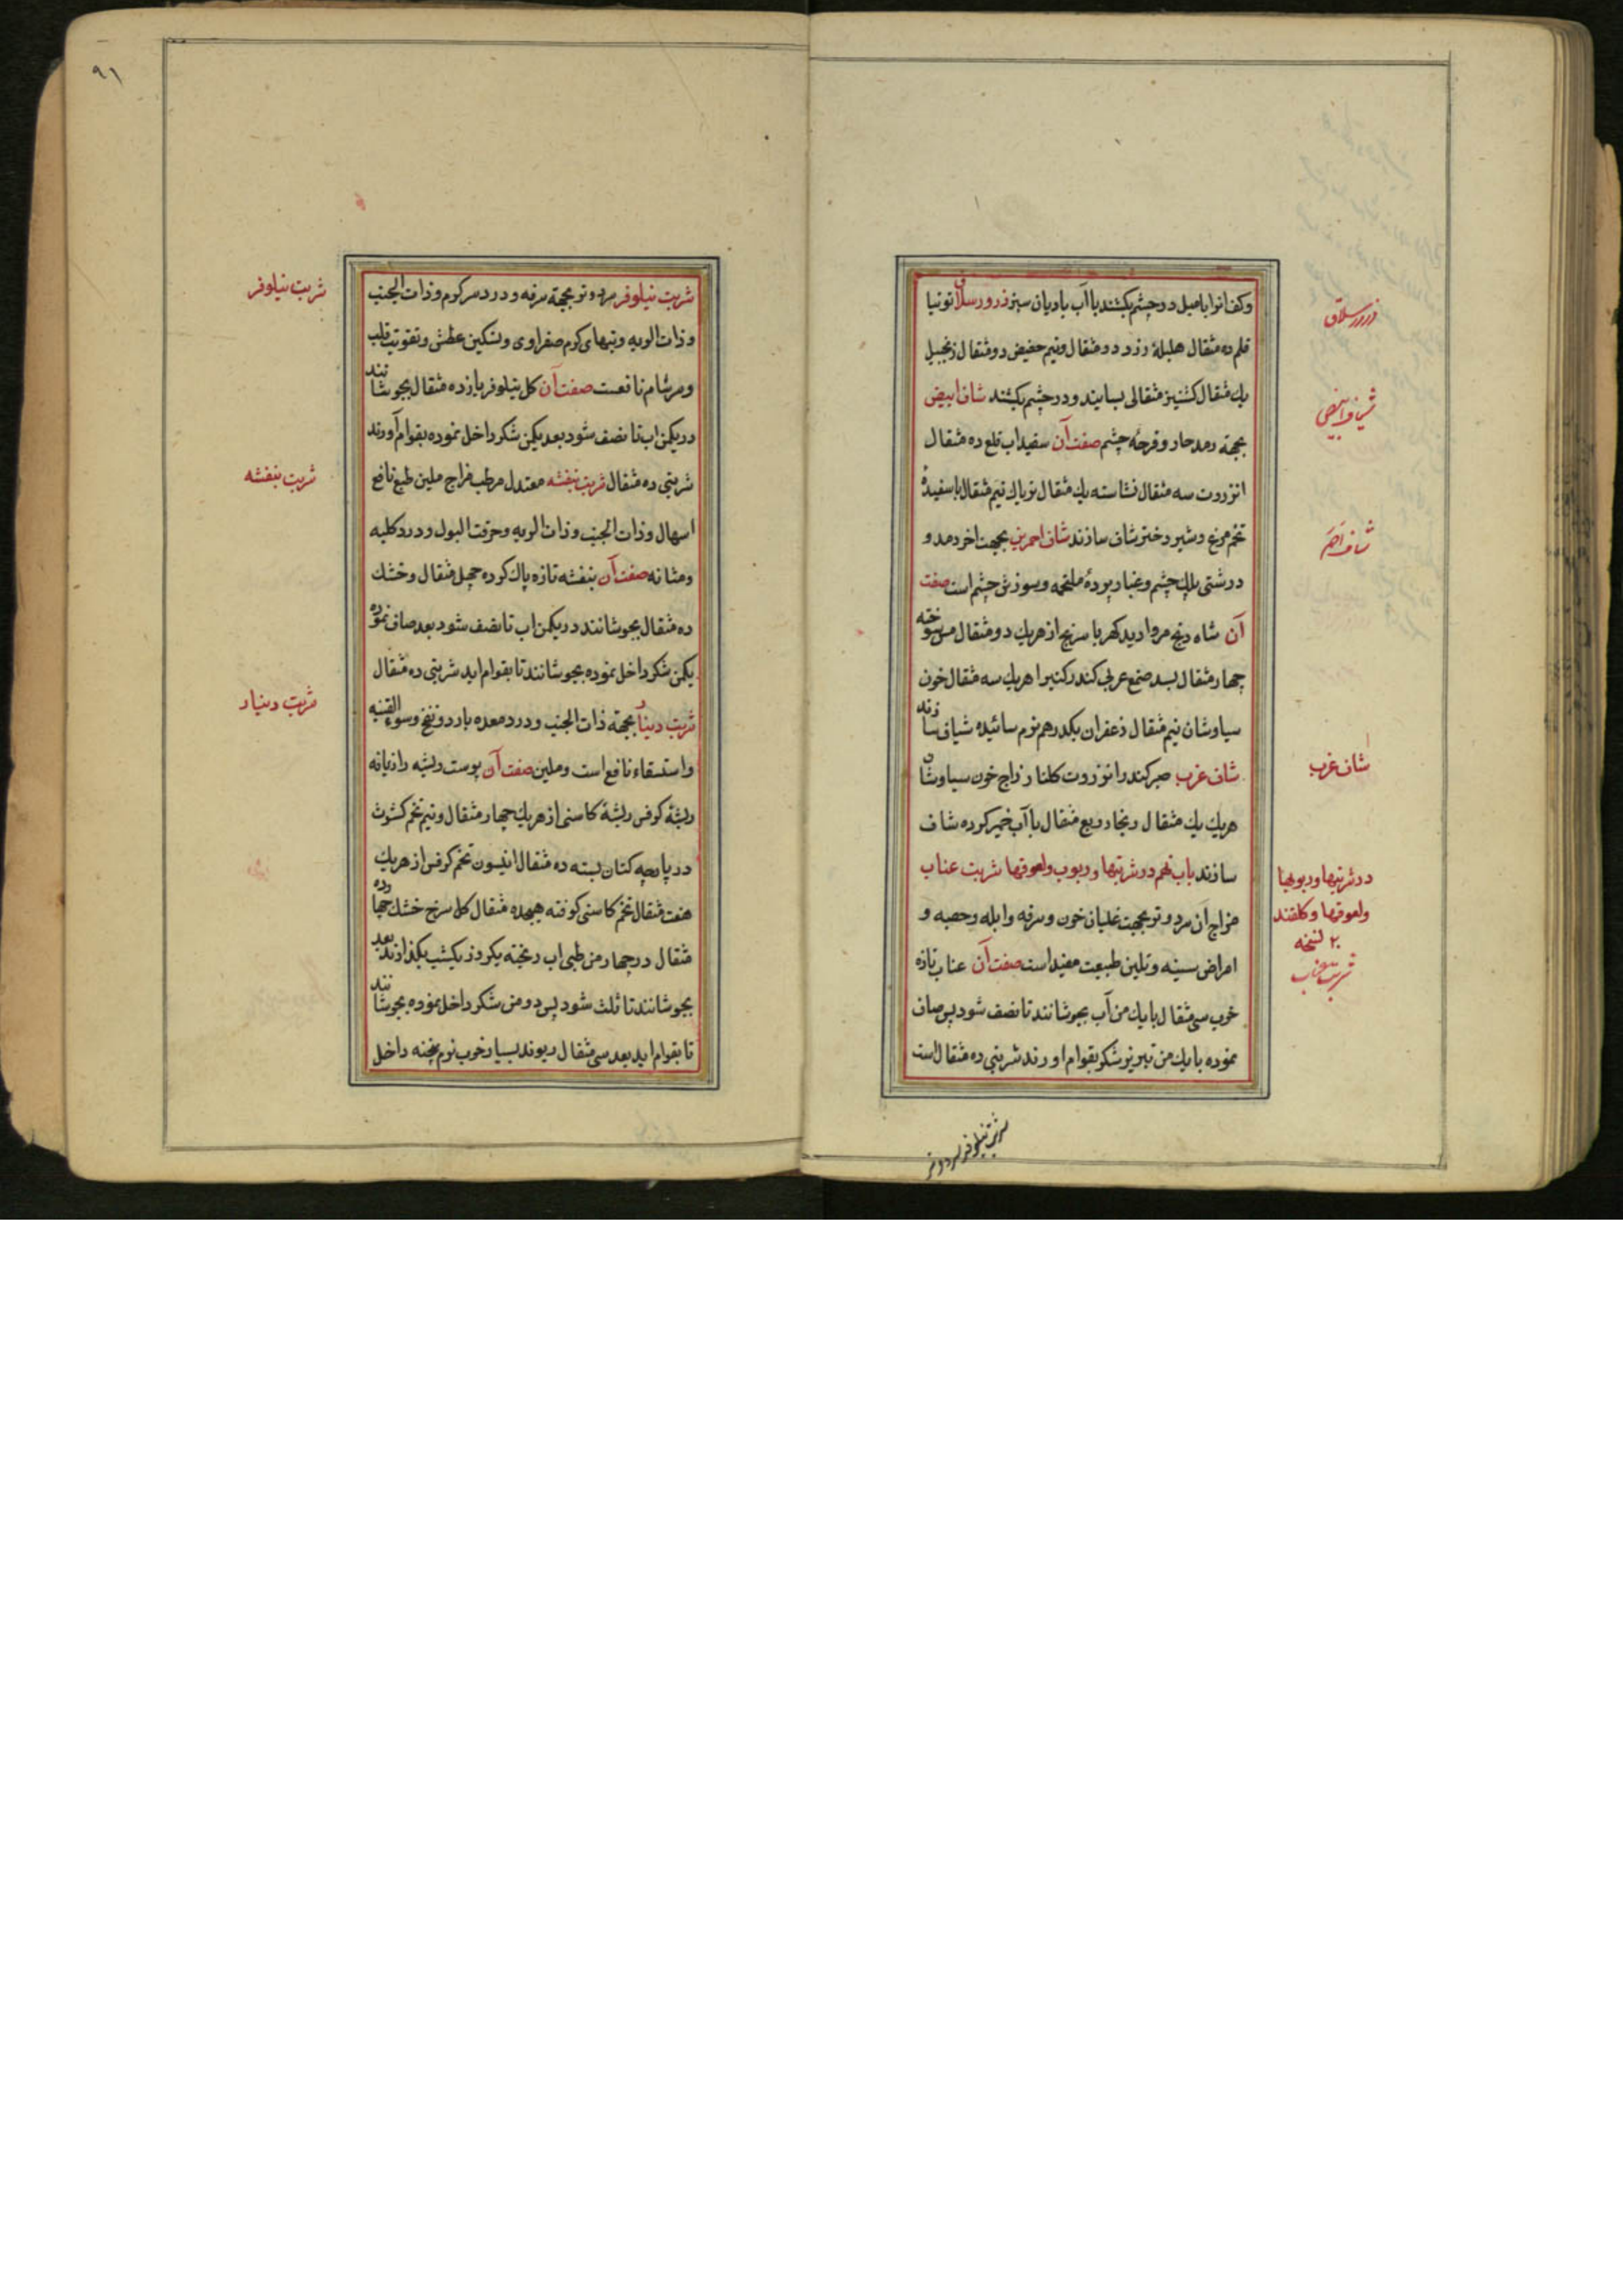 وکف انرا با میل در چشم بکشند با آب بادیان سبز ذرور سلاق توتیا
قلم ده مثقال هلیلهٔ زرد دو مثقال ونیم حضیض دو مثقال زنجبیل
یك مثقال کشنیز مثقالی بسایند ودر چشم بکشند شاف ابیض
بجهة رمد حار وقرحهٔ چشم صفت آن سفیداب قلع ده مثقال
انزروت سه مثقال نشاسته یك مثقال تریاك نیم مثقال با سفیدهٔ
تخم مرغ وشیر دختر شاف سازند شاف احمرین بجهت اخر رمد و
درشتی پلك چشم وغبار پردهٔ ملتحمه وسوزش چشم است صفت
آن شاه دنج مروارید کهربا سرنج از هریك دو مثقال مس سوخته
چهار مثقال بسد صمغ عربی کندر کتیرا هریك سه مثقال خون
سیاوشان نیم مثقال زعفران یکدرهم نرم سائیده شیاف سازند
شاف غرب صبر کندر انزروت کلنار زاج خون سیاوشان
هریك یك مثقال زنجار ربع مثقال با آب خمیر کرده شاف
سازند باب نهم در شربتها وربوب ولعوقها شربت عناب
مزاج آن سرد وتر بجهت غلیان خون وسرفه وابله وحصبه و
امراض سینه وتلین طبیعت مفید است صفت آن عناب تازه
خوب سی مثقال با یك من آب بجوشانند تا نصف شود پس صاف
نموده با یك من تبریز شکر بقوام اورند شربتی ده مثقال است
شربت نیلوفر سرد وتر
ذرور سلاق
شیاف ابیض
شاف احمر
شاف غرب
در شربتها وربوبها
ولعوقها وکلقند
۲۰ نسخه
شربت عناب
۹۱
شربت نیلوفر سرد وتر بجهة سرفه ودرد سر کرم وذات الجنب
وذات الریه وتبهای کرم صفراوی وتسکین عطش وتقویت قلب
وسرسام نافعست صفت آن کل نیلوفر یازده مثقال بجوشانند
در یکمن اب تا نصف شود بعد یکمن شکر داخل نموده بقوام آورند
شربتی ده مثقال شربت بنفشه معتدل مرطب مزاج ملین طبع نافع
اسهال وذات الجنب وذات الریه وحرقت البول ودرد کلیه
ومثانه صفت آن بنفشه تازه پاك کرده چهل مثقال وخشك
ده مثقال بجوشانند در یکمن اب تا نصف شود بعد صاف نموده
یکمن شکر داخل نموده بجوشانند تا بقوام اید شربتی ده مثقال
شربت دینار بجهة ذات الجنب ودرد معده بارد ونفخ وسوء القنیه
واستسقاء نافع است وملین صفت آن پوست ریشه رازیانه
ریشهٔ کرفس ریشهٔ کاسنی از هریك چهار مثقال ونیم تخم کشوث
در پارچه کتان بسته ده مثقال انیسون تخم کرفس از هریك
هفت مثقال تخم کاسنی کوفته هیجده مثقال کل سرخ خشك چهارده
مثقال در چهار من طبی اب ریخته یکروز یکشب بکذارند بعد
بجوشانند تا ثلث شود پس دو من شکر داخل نموده بجوشانند
تا بقوام اید بعد سی مثقال ریوند بسیار خوب نرم پخته داخل
شربت نیلوفر
شربت بنفشه
شربت دینار